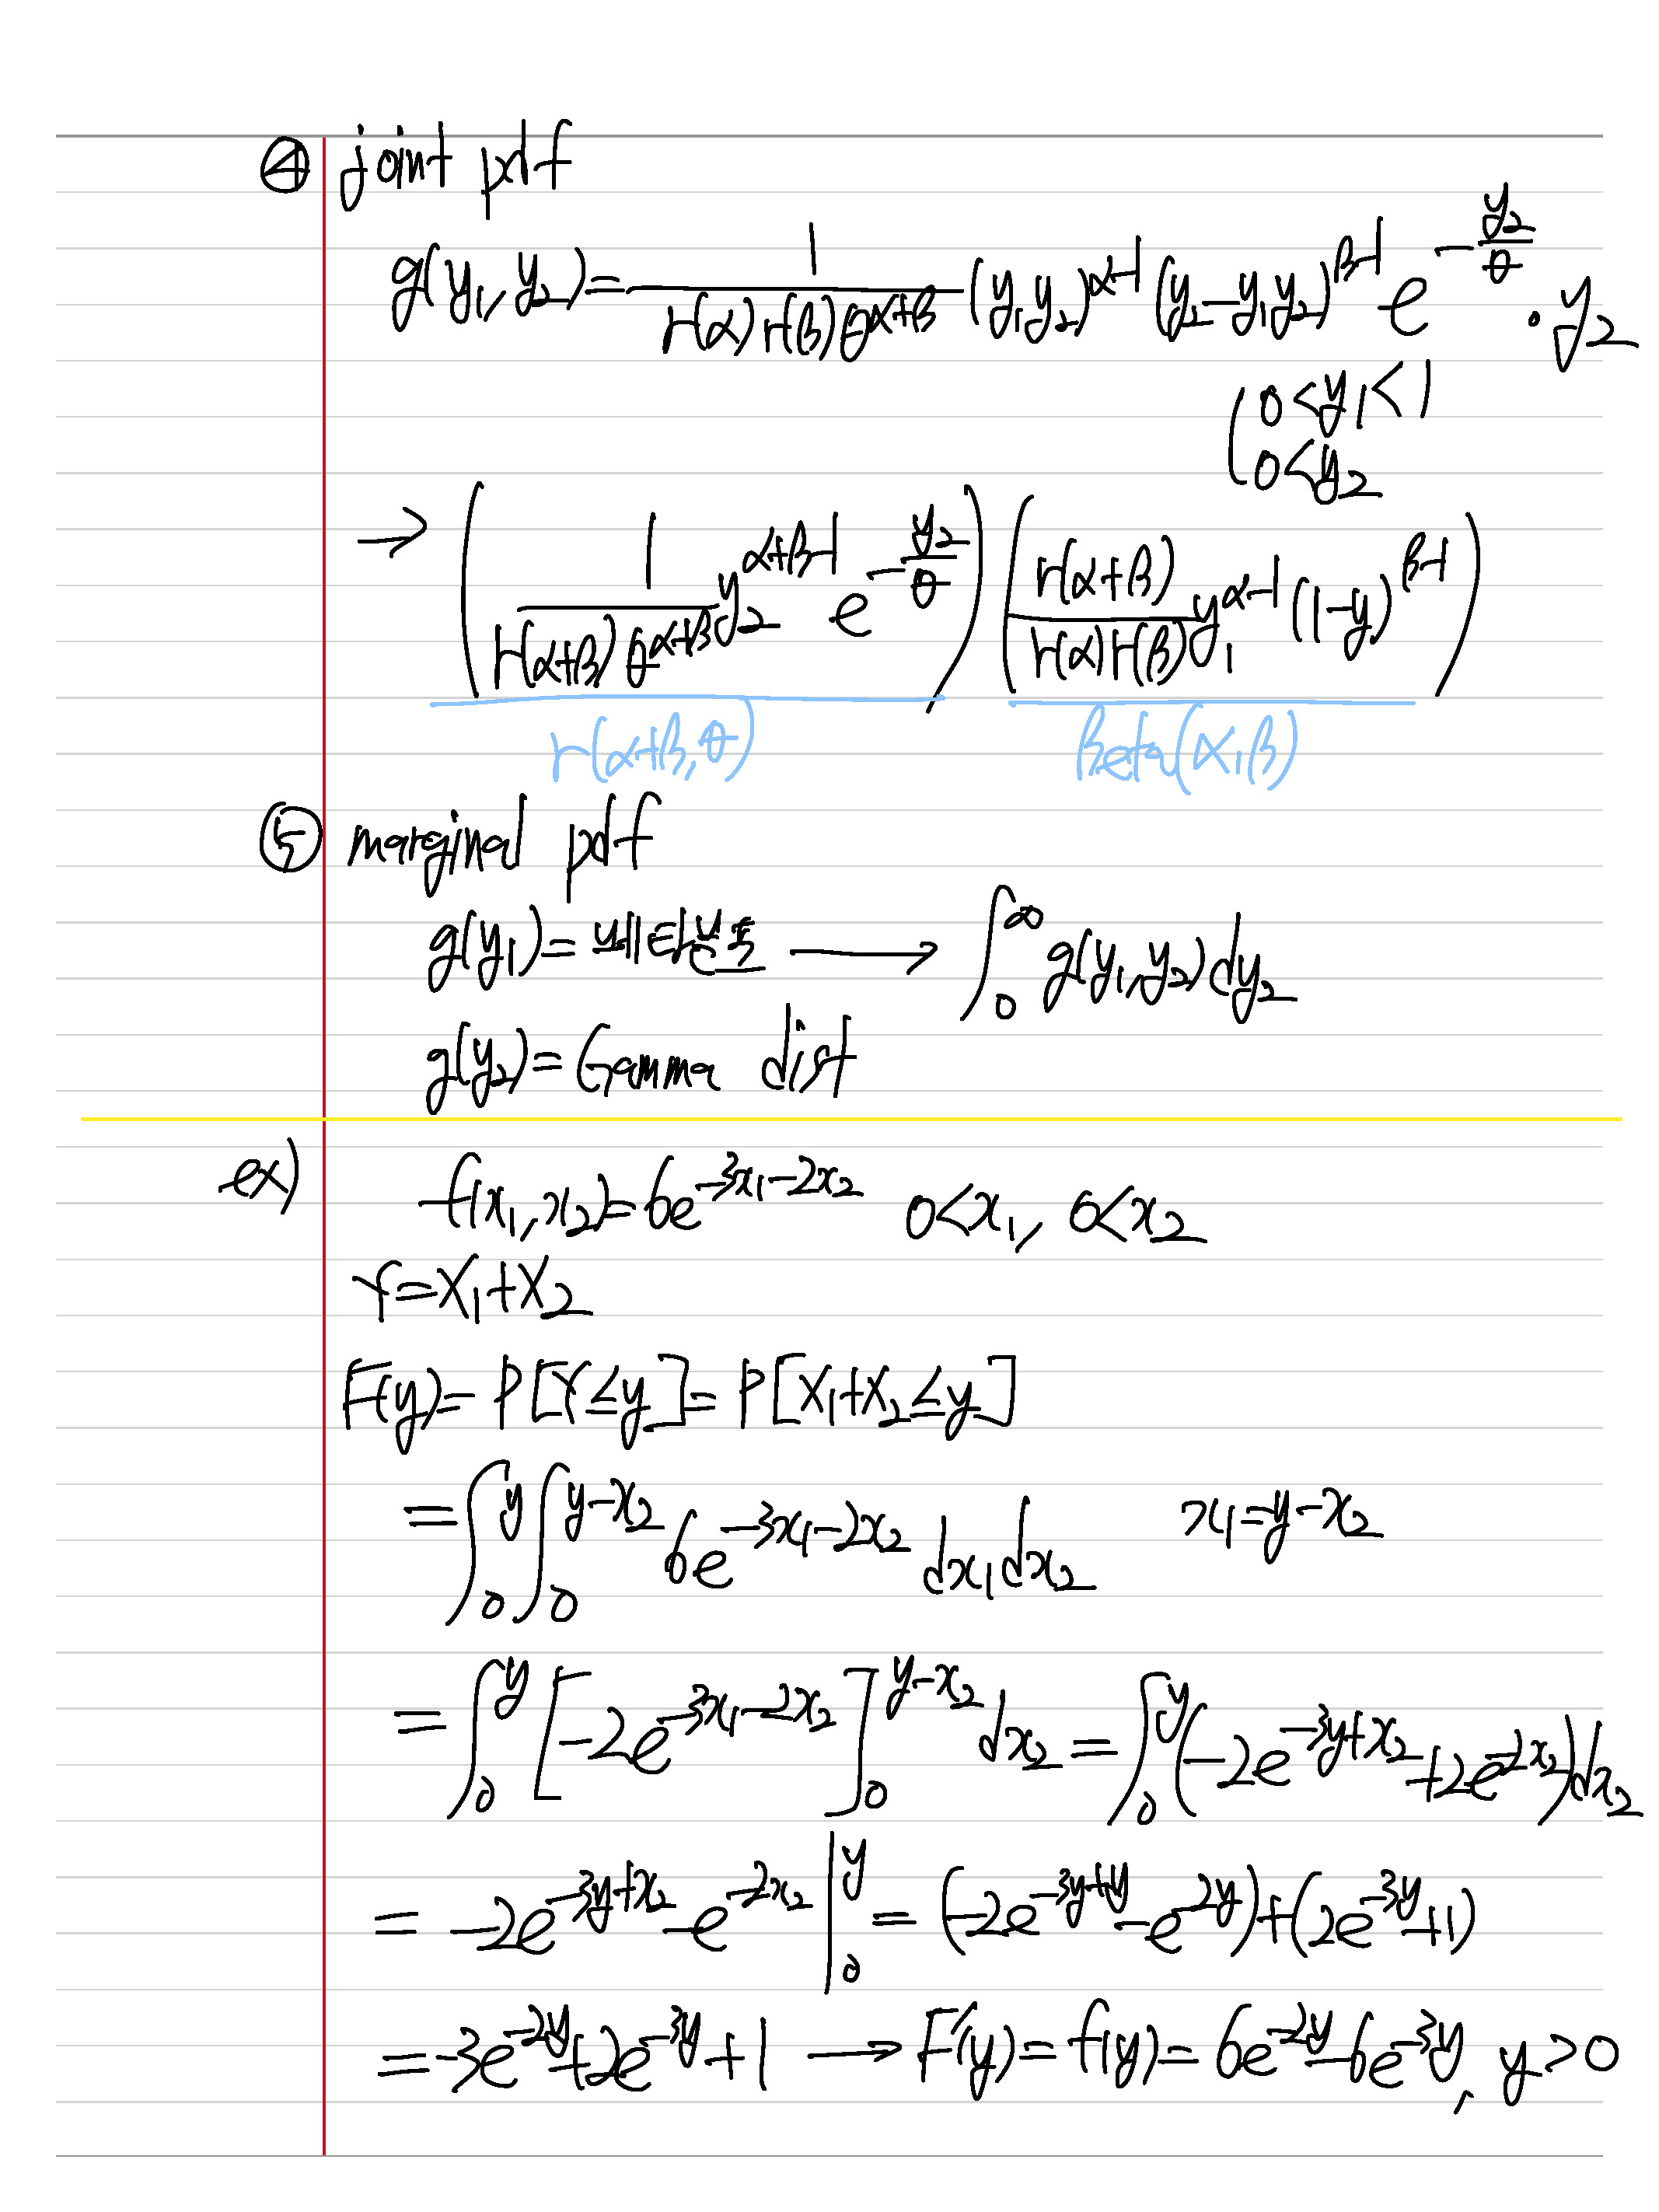 ④ joint pdf
g(y₁, y₂) = 1/(Γ(α)Γ(β)θ^(α+β)) (y₁y₂)^(α-1) (y₂-y₁y₂)^(β-1) e^(-y₂/θ) · y₂
( 0<y₁<1
0<y₂
→ ( 1/(Γ(α+β)θ^(α+β)) y₂^(α+β-1) e^(-y₂/θ) ) ( Γ(α+β)/(Γ(α)Γ(β)) y₁^(α-1) (1-y)^(β-1) )
Γ(α+β, θ) Beta(α, β)
⑤ marginal pdf
g(y₁) = 베타분포 ⟶ ∫₀^∞ g(y₁, y₂) dy₂
g(y₂) = Gamma dist
ex) f(x₁, x₂) = 6e^(-3x₁-2x₂) 0<x₁, 0<x₂
Y = X₁+X₂
F(y) = P[Y≤y] = P[X₁+X₂≤y]
= ∫₀^y ∫₀^(y-x₂) 6e^(-3x₁-2x₂) dx₁dx₂ x₁=y-x₂
= ∫₀^y [-2e^(-3x₁-2x₂)]₀^(y-x₂) dx₂ = ∫₀^y (-2e^(-3y+x₂) +2e^(-2x₂)) dx₂
= -2e^(-3y+x₂) -e^(-2x₂) |₀^y = (-2e^(-3y+y) -e^(-2y)) + (2e^(-3y) +1)
= -3e^(-2y) +2e^(-3y) +1 ⟶ F'(y) = f(y) = 6e^(-2y) -6e^(-3y), y>0